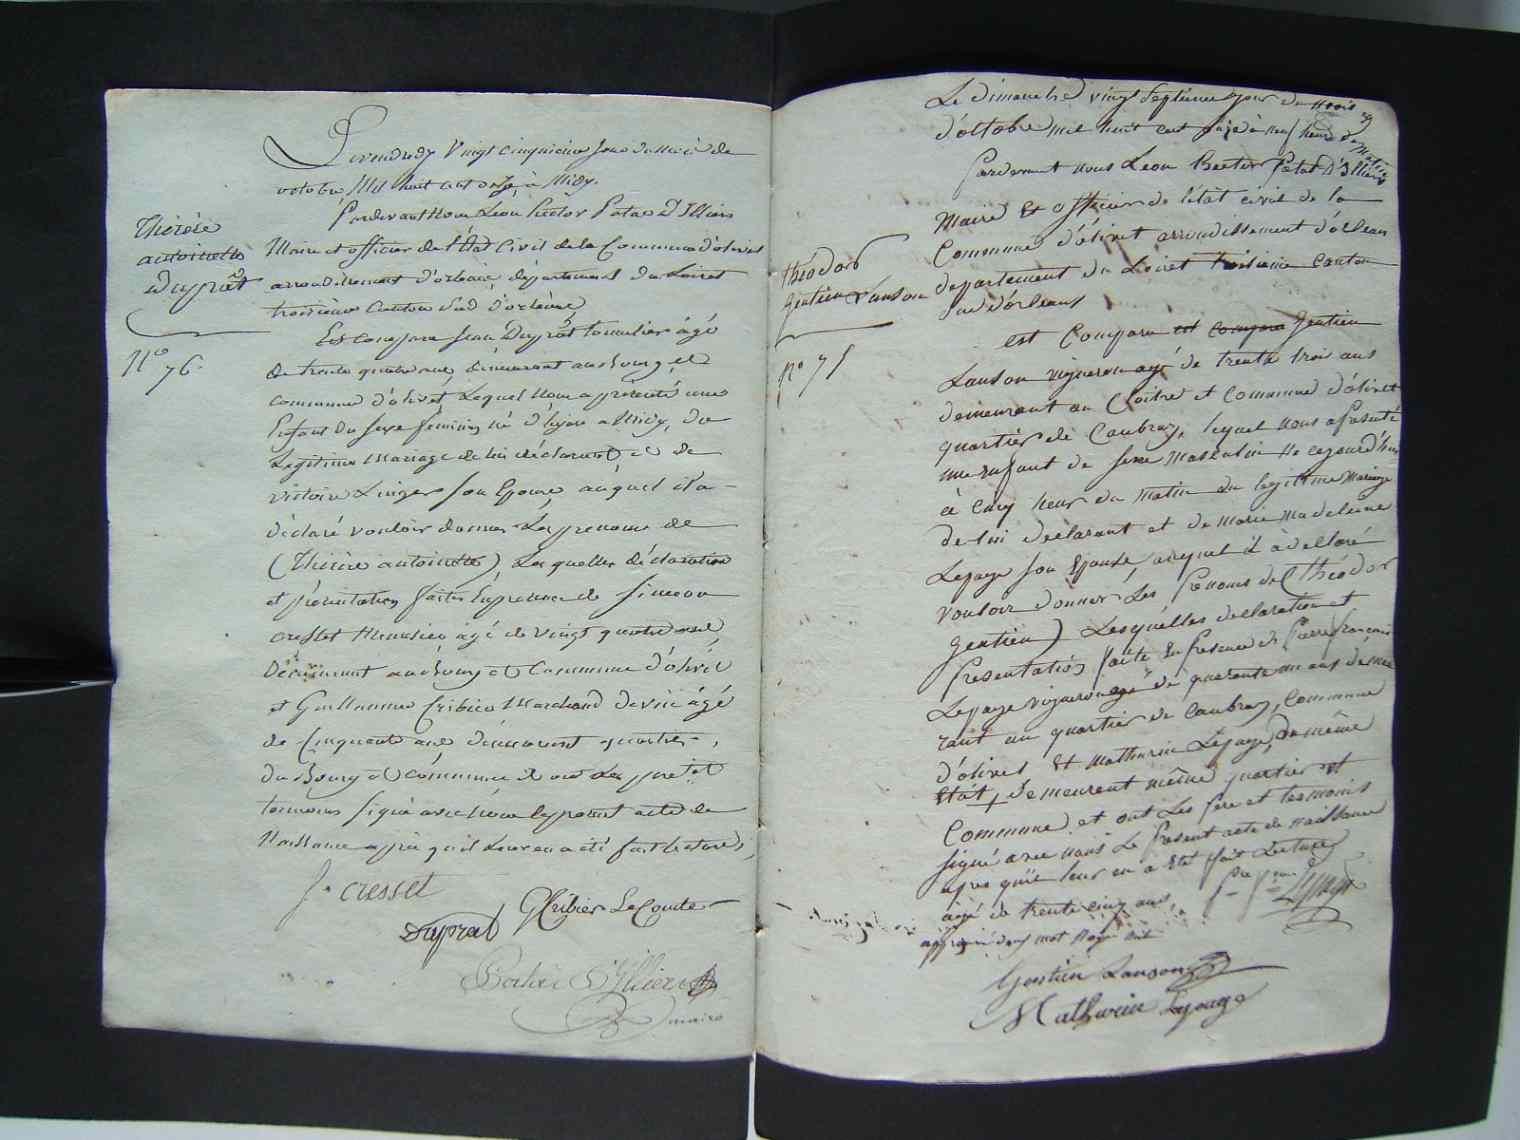 Le vendredy Vingt Cinquieme Jour du mois de
octobre Mil huit cent onze, à Midy.
Pardevant Nous Léon hector Patas D'Illiers
Maire et officier de l'Etat Civil de la Commune d'olivet
arrondissement d'orleans département du Loiret
troisieme Canton Sud d'orleans
Thérèse
antoinette
Duprat
No 76.
Est Comparu Jean Duprat tonnelier âgé
de trente quatre ans, demeurant au Bourg et
commune d'olivet Lequel Nous a présenté une
Enfant du Sexe féminin né d'hyer a Midy, du
Legitime Mariage de lui déclarant et de
victoire Linger son Epouse, auquel il a
déclaré vouloir donner Les prenoms de
(Thérèse antoinette) Les quelles déclaration
et présentation faites En présence de Simeon
Cresset Menuisier âgé de vingt quatre ans
Demeurant au Bourg et Commune d'olivet
et Guillaume Cribier Marchand De vin âgé
de Cinquante ans demeurant
du Bourg et commune et ont Les pere et
temoins signé avec Nous le present acte de
Naissance après qu'il Leur en a été fait lecture,
S. cresset
G Cribier LeComte
Duprat
Patas D'Illiers
maire
Le dimanche vingt Septieme jour du mois
d'octobre mil huit cent onze à neuf heure du matin
Pardevant nous Leon Hector Patas D'Illiers
Maire Et officier de l'état civil de la
Commune d'olivet arrondissement d'orleans
departement du Loiret troisieme canton
Sud d'orleans
théodor
Gentien Lanson
No 77
est Comparu est comparu Gentien
Lanson vigneron agé de trente trois ans
demeurant au Cloitre et commune d'olivet
quartier de Caubray, lequel nous a présenté
une enfant de sexe masculin né ce jourd'hui
à cinq heur du matin du legitime mariage
de lui déclarant et de marie madeleine
Lepage son Epouse auquel il à declaré
vouloir donner Les prenoms de (théodor
gentien) Lesquelles declaration et
presentation faite En presence de Pierre françois
Lepage vigneron agé de quarante un ans demeu
rant au quartier de Caubray, Commune
d'olivet et Mathurin Lepage, de même
Etat, demeurent même quartier et
Commune et ont Les pere et temoins
signé avec nous Le present acte de naissance
apres qu'il leur en a été fait Lecture
agé de trente cinq ans,
Lepage
Gentien Lanson
Mathurin Lepage